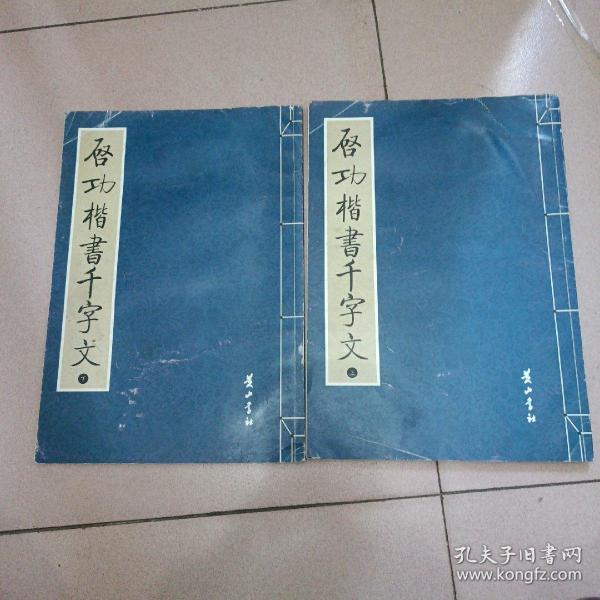 启功楷書千字文
下
黄山书社
启功楷書千字文
上
黄山书社
孔夫子旧書网
www.kongfz.com